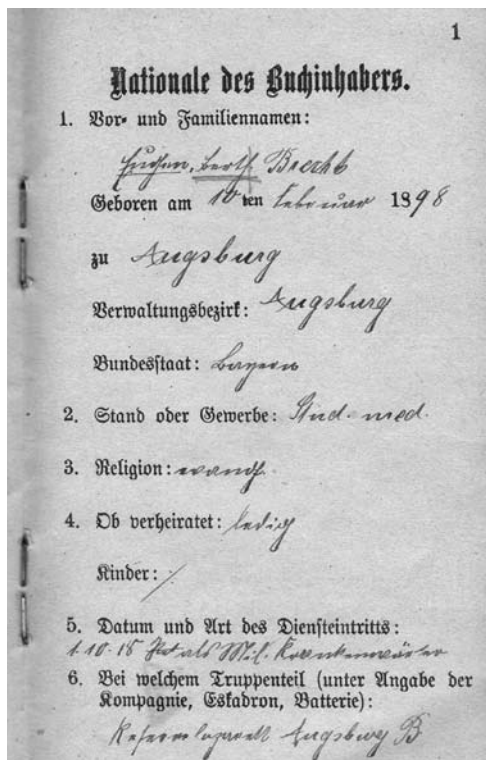 1
Nationale des Buchinhabers.
1. Vor- und Familiennamen:
Eugen, Berth Brecht
Geboren am 10 ten Februar 1898
zu Augsburg
Verwaltungsbezirk: Augsburg
Bundesstaat: Bayern
2. Stand oder Gewerbe: Stud. med.
3. Religion: evang.
4. Ob verheiratet: ledig
Kinder: /.
5. Datum und Art des Diensteintritts:
1.10.18 als Mil. Krankenwärter
6. Bei welchem Truppenteil (unter Angabe der
Kompagnie, Eskadron, Batterie):
Reservelazarett Augsburg B